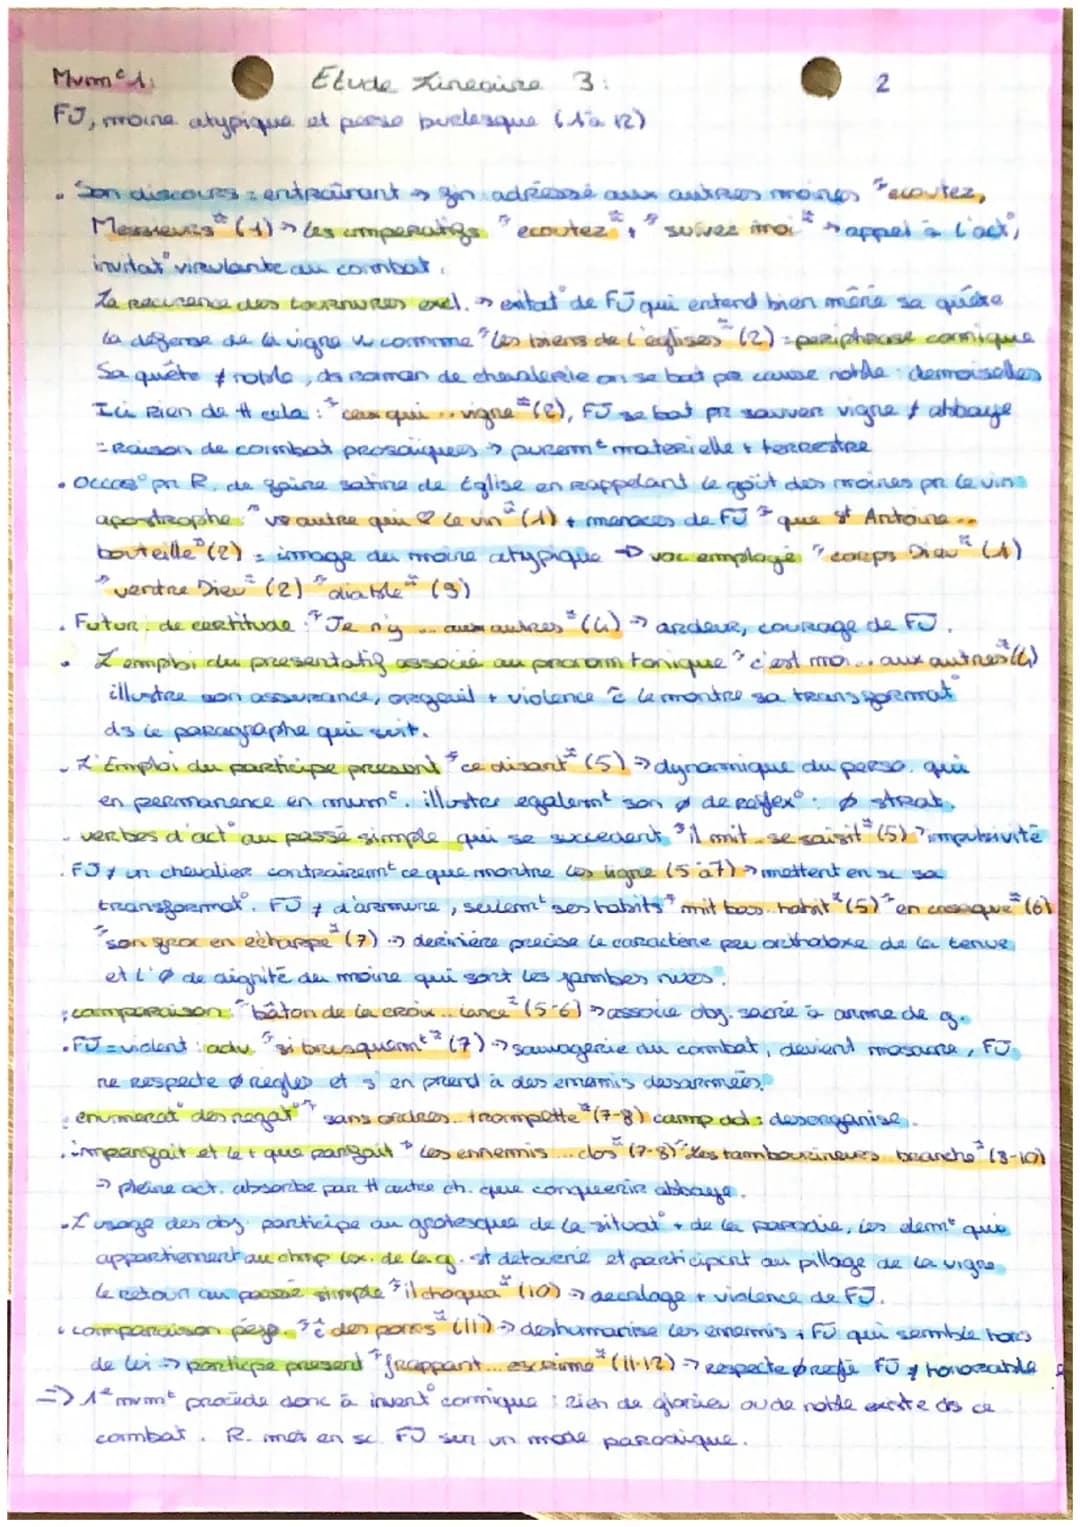 Mvm^t 1:
Etude Lineaire 3:
2
FJ, moine atypique et perso burlesque (1 à 12)
• Son discours = entraînant → gjn adréssé aux autres moines "ecoutez,
Messieurs" (1) → les imperatifs "ecoutez" + "suivez moi" → appel à l'act°,
invitat° virulante au combat.
La recurence des tournures excl. → exitat° de FJ qui entend bien menér sa quête
la défense de la vigne vu comme "les biens de l'eglises" (2) = periphrase comique
Sa quête ≠ noble, ds roman de chevalerie on se bat pr cause noble : demoiselles
Ici rien de tt cela : "ceux qui .. vigne" (2), FJ se bat pr sauver vigne ≠ abbaye
= raison de combat prosaïques → purem^t materielle + terrestre
• Occas° pr R. de faire satire de Eglise en rappelant le goût des moines pr le vin =
apostrophe : "vs autre qui ♡ le vin" (1) + menaces de FJ "que st Antoine ..
bouteille" (2) = image du moine atypique → voc employé "corps Dieu" (1)
"ventre Dieu" (2) "diable" (3)
• Futur de certitude : "Je n'y ... aux autres" (4) → ardeur, courage de FJ.
• L'emploi du presentatif associé au pronom tonique "c'est moi .. aux autres" (4)
illustre son assurance, orgeuil + violence ĉ le montre sa transformat°
ds le paragraphe qui suit.
• L'Emploi du participe present "ce disant" (5) → dynamique du perso. qui
en permanence en mvm^t. illustre egalem^t son ø de reflex° : ø strat.
- verbes d'act° au passé simple qui se succedent "il mit .. se saisit" (5) → impulsivité
• FJ ≠ un chevalier contrairem^t ce que montre les ligne (5 à 7) → mettent en sc sa
transformat°. FJ ≠ d'armure, seulem^t ses habits "mit bas .. habit" (5) "en casaque" (6)
"son froc en écharpe" (7) → derinière precise le caractère peu orthodoxe de la tenue
et l'ø de dignité du moine qui sort les jambes nues.
• comparaison : "bâton de la croix .. lance" (5-6) → associe obj. sacré à arme de g.
• FJ = violent : adv. "si brusquem^t" (7) → sauvagerie du combat, devient massacre, FJ
ne respecte ø règles et s'en prend à des ennemis desarmées.
• enumerat° des negat° "sans ordres .. trompette" (7-8) camp adv : desorganise.
• imparfait et le + que parfait "les ennemis ... clos" (7-8) "Les tambourineurs branche" (8-10)
→ pleine act. absorbe par tt autre ch. que conquerir abbaye.
• L'usage des obj. participe au grotesque de la situat° + de la parodie, les elem^t qui
appartiennent au chmp lex. de la g. st detourné et participent au pillage de la vigne
le retour au passé simple "il choqua" (10) → decalage + violence de FJ.
• comparaison pejo. "ĉ des porcs" (11) → deshumanise les ennemis + FJ qui semble hors
de lui → participe present "frappant ... escrime" (11-12) → respecte ø regle FJ ≠ honorable
=> 1^e mvm^t procède donc à invent° comique : rien de glorieux ou de noble existe ds ce
combat. R. met en sc. FJ sur un mode parodique.